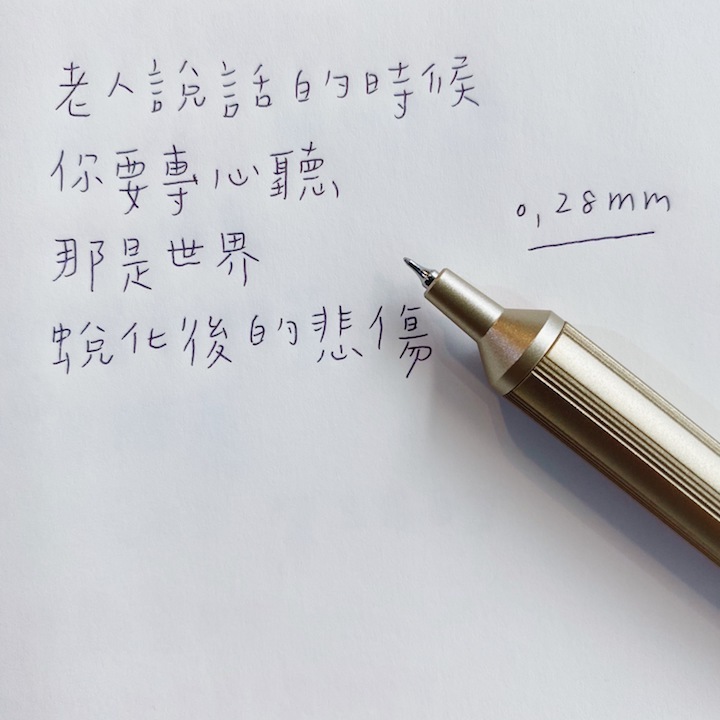 老人說話的時候
你要專心聽
0,28mm
那是世界
蛻化後的悲傷